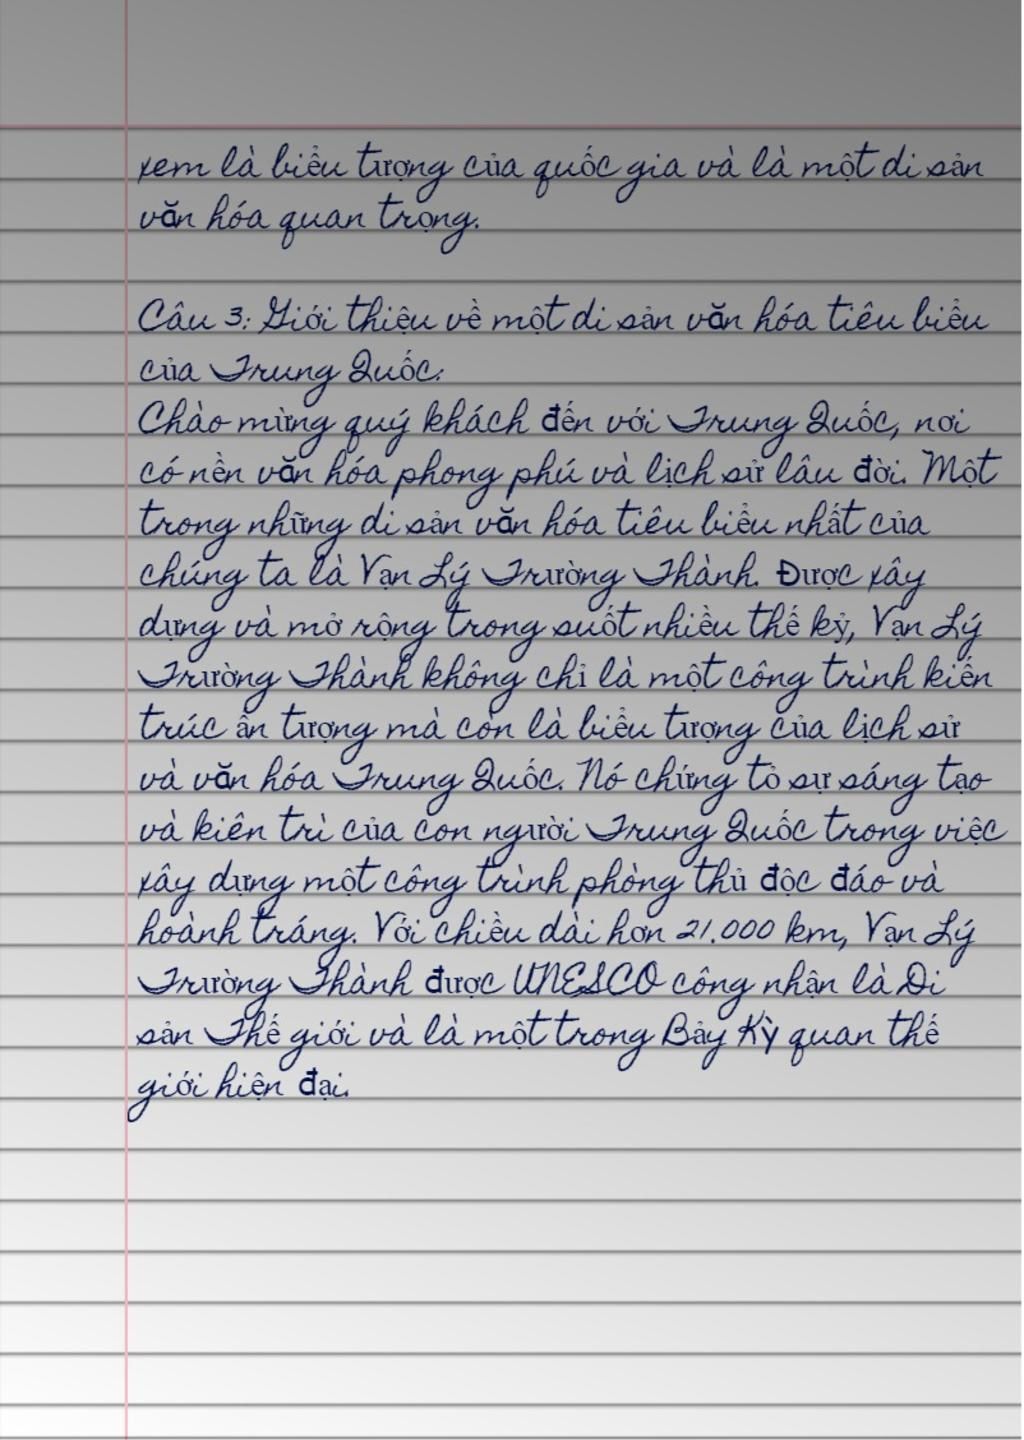 xem là biểu tượng của quốc gia và là một di sản
văn hóa quan trọng.
Câu 3: Giới thiệu về một di sản văn hóa tiêu biểu
của Trung Quốc:
Chào mừng quý khách đến với Trung Quốc, nơi
có nền văn hóa phong phú và lịch sử lâu đời. Một
trong những di sản văn hóa tiêu biểu nhất của
chúng ta là Vạn Lý Trường Thành. Được xây
dựng và mở rộng trong suốt nhiều thế kỷ, Vạn Lý
Trường Thành không chỉ là một công trình kiến
trúc ấn tượng mà còn là biểu tượng của lịch sử
và văn hóa Trung Quốc. Nó chứng tỏ sự sáng tạo
và kiên trì của con người Trung Quốc trong việc
xây dựng một công trình phòng thủ độc đáo và
hoành tráng. Với chiều dài hơn 21.000 km, Vạn Lý
Trường Thành được UNESCO công nhận là Di
sản Thế giới và là một trong Bảy Kỳ quan thế
giới hiện đại.